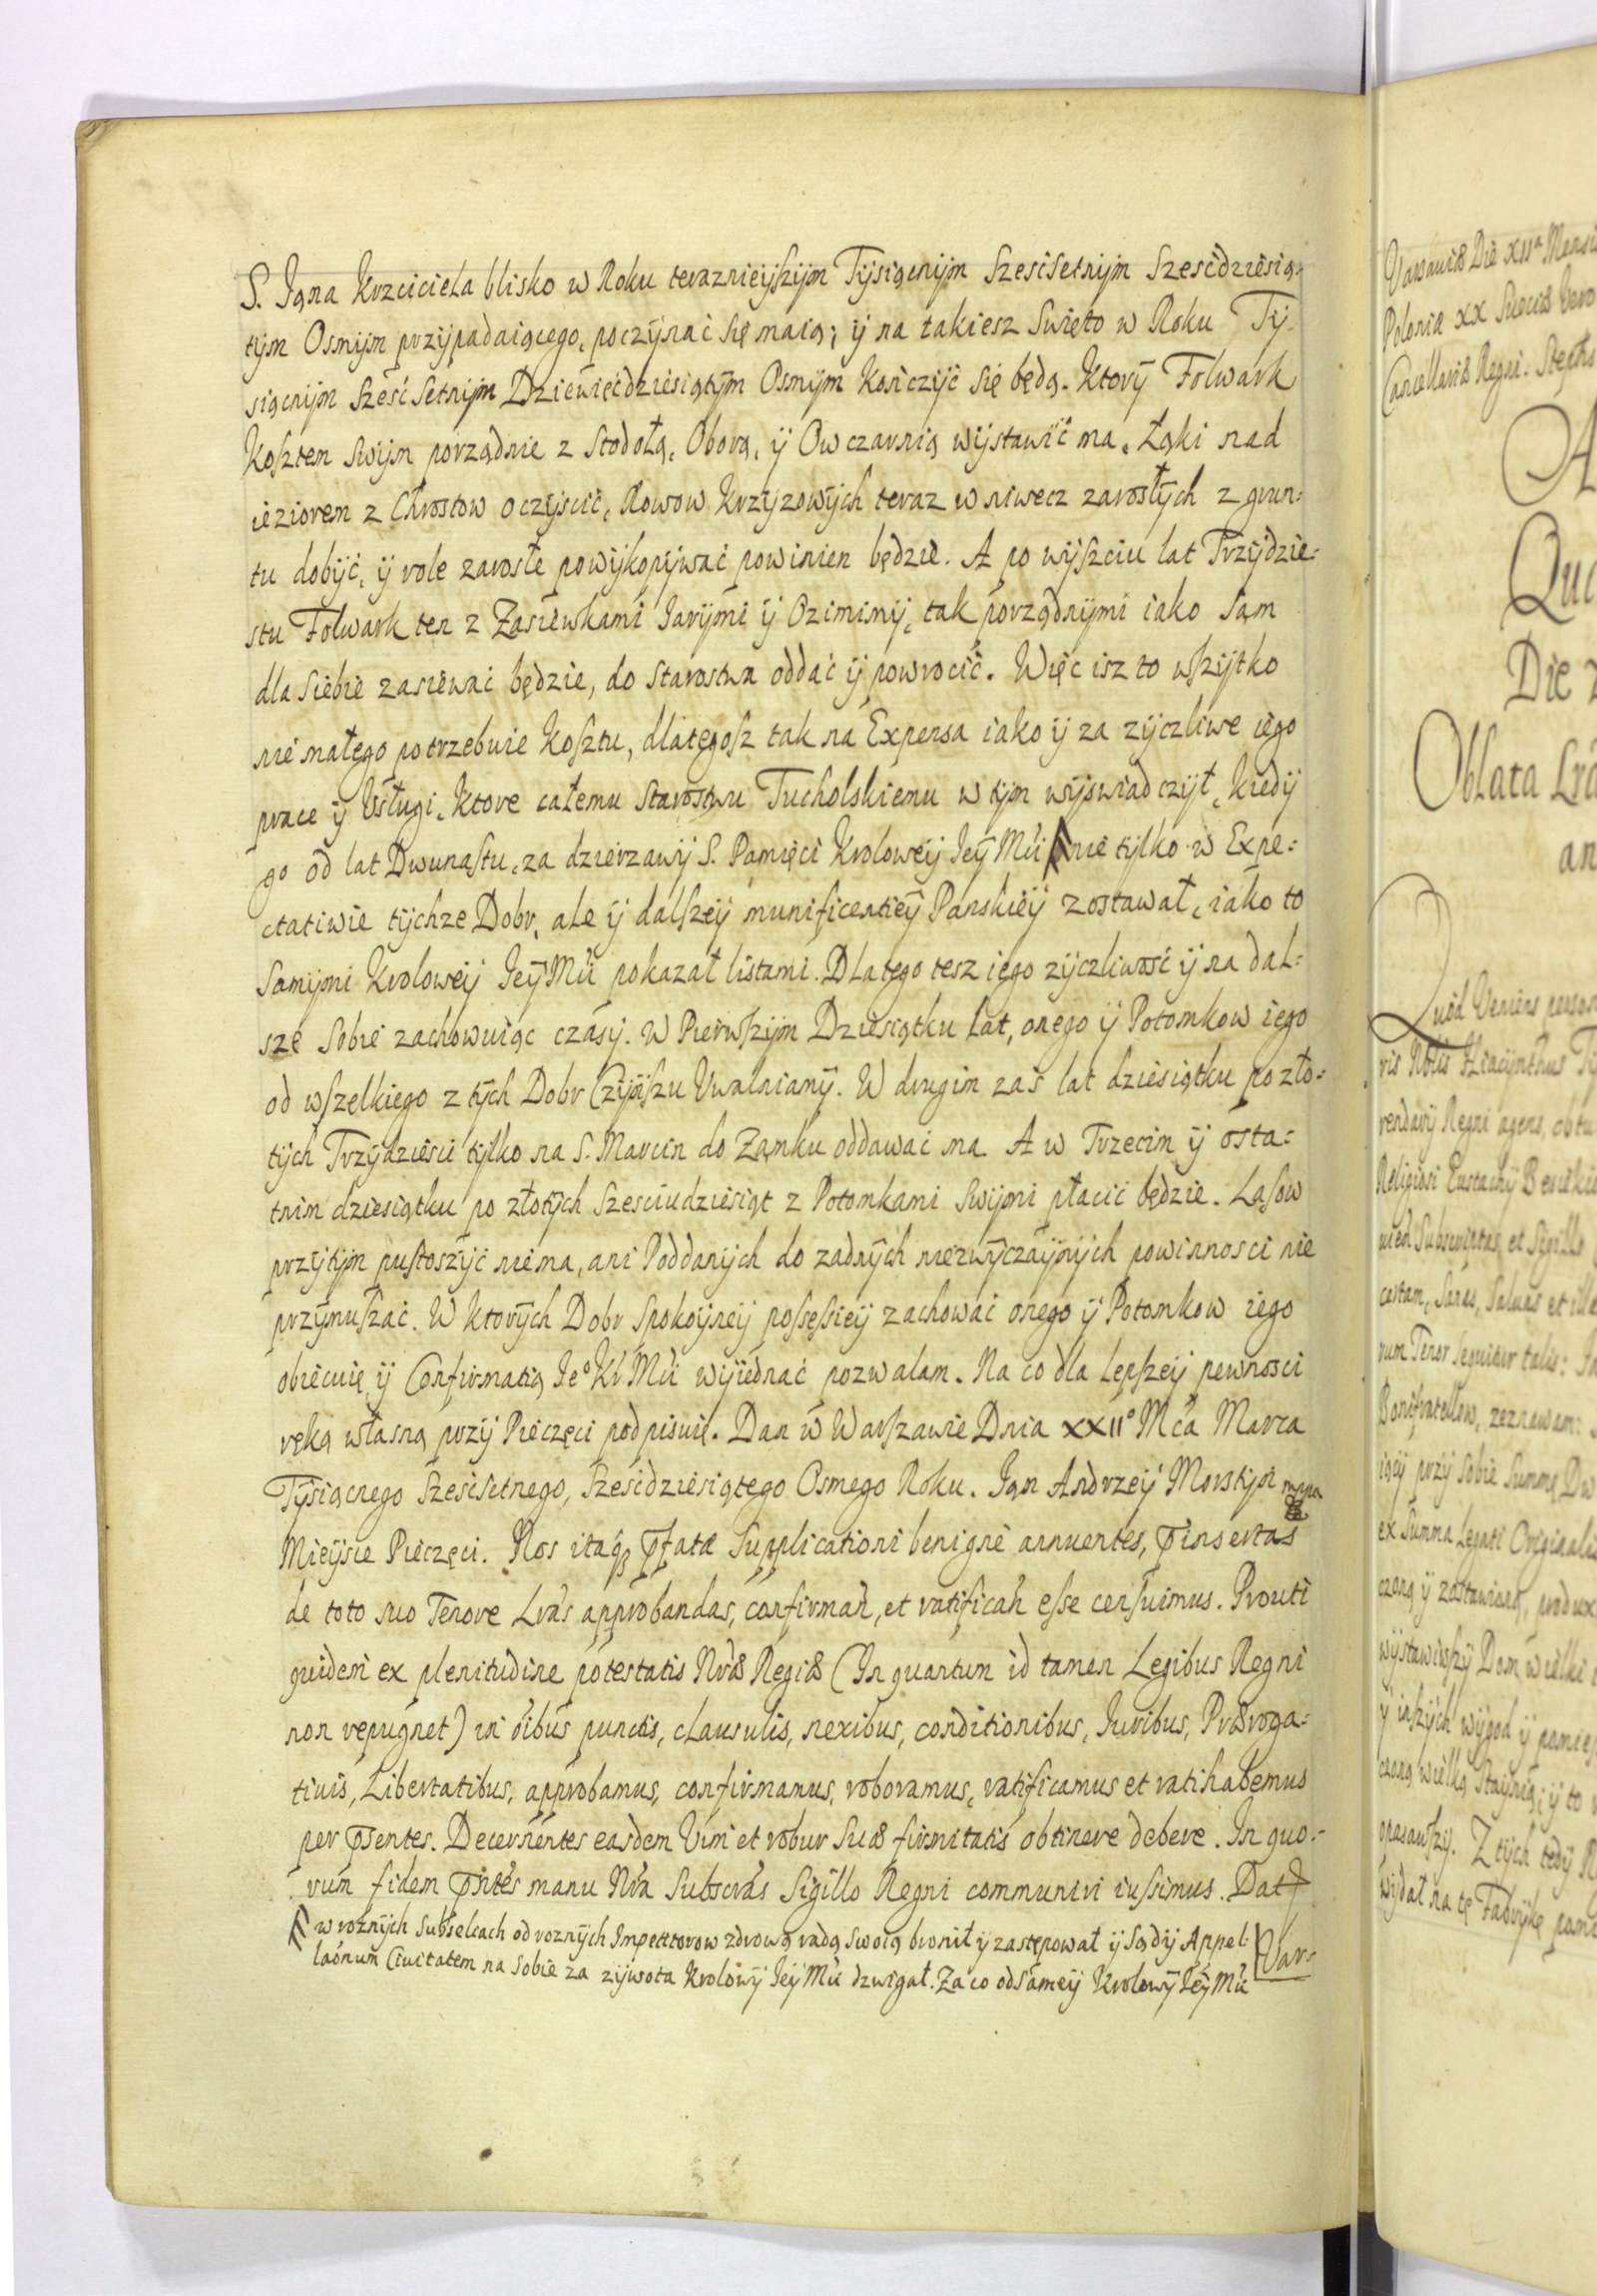 S. Iąna Krzciciela blisko w Roku teraznieÿszÿm Tÿsiącnÿm Szescsetnÿm Szescdziesią-
tÿm Osmÿm przÿpadaiącego, poczÿnać się maią; ÿ na takiesz Swięto w Roku Tÿ-
siącnÿm Sześć Setnÿm Dziewięćdziesiątÿm Osmÿm Kończÿć się będą. Ktorÿ Folwark
Kosztem Swÿm porządnie z Stodołą, Oborą, ÿ Owczarnią wÿstawić ma. Łąki nad
ieziorem z Chrostow oczÿscić, Rowow Krzÿzowÿch teraz w niwecz zarosłÿch z grun:
tu dobÿć, ÿ role zarosłe powÿkopÿwać powinien będzie. A po wÿszciu lat Trzÿdzie:
stu Folwark ten z Zasiewkami Iarÿmi ÿ Oziminÿ, tak porządnÿmi iako Sam
dla Siebie zasiewać będzie, do Starostwa oddać ÿ powrocić. Więc isz to wszÿtko
nie małego potrzebuie Kosztu, dlategosz tak na Expensa iako ÿ za zÿczliwe iego
prace ÿ Usługi, Ktore całemu Starostwu Tucholskiemu w tÿm wÿswiadczÿł, kiedÿ
go od lat Dwunastu, za dzierzawÿ S. Pamięci Kroloweÿ Ieÿ Mći nie tÿlko w Expe:
ctatiwie tÿchze Dobr, ale ÿ dalszeÿ munificentieÿ Panskieÿ zostawał, iako to
Samÿmi Kroloweÿ Ieÿ Mći pokazał listami. Dlatego tesz iego zÿczliwość ÿ na dal:
sze Sobie zachowuiąc czasÿ. W Pierwszÿm Dziesiątku Lat, onego ÿ Potomkow iego
od wszelkiego z tÿch Dobr Czÿnszu Uwalnianÿ. W drugim zaś lat dziesiątku po zło:
tÿch Trzÿdziesci tÿlko na S. Marcin do Zamku oddawać ma. A w Trzecim ÿ osta:
tnim dziesiątku po złotÿch Szesciudziesiąt z Potomkami Swÿmi płacić będzie. Lasow
przÿtÿm pustoszÿć nie ma, ani Poddanÿch do zadnÿch niezwÿczaÿnÿch powinnosci nie
przÿmuszać. W Ktorÿch Dobr Spokoÿneÿ possessieÿ zachować onego ÿ Potomkow iego
obiecuię ÿ Confirmatią Ie° Kr Mći wÿiednać pozwalam. Na co dla Lepszeÿ pewnosci
ręką własną przÿ Pieczęci podpisuię. Dan w Warszawie Dnia XXII° Mća Marca
Tÿsiącnego Szescsetnego, Szescdziesiątego Osmego Roku. Iąn Andrzeÿ Morstÿn mppa
Mieÿsce Pieczęci. Nos itaq3 p̄fatæ Supplicationi benignè annuentes, p̄insertas
de toto suo Tenore Lrás approbandas, confirmañ, et ratificań esse censuimus. Prouti
quidem ex plenitudine potestatis Nrǽ Regiæ (In quantum id tamen Legibus Regni
non repugnet) in óibus punctis, clausulis, nexibus, conditionibus, Iuribus, Præroga:
tiuis, Libertatibus, approbamus, confirmamus, roboramus, ratificamus et ratihabemus
per p̄sentes. Decernentes easdem Vim et robur Suæ firmitatis obtinere debere. In quo-
rum fidem p̄ntes manu Nrá Subscrás Sigillo Regni communiri iussimus. Dat
w roznÿch Subseliach od roznÿch Impetitorow zdrową radą Swoią bronił ÿ zastępował ÿ Sądÿ Appel:
laónum Ciuitatem na Sobie za zÿwota Krolowÿ Ieÿ Mći dzwigał. Za co od Sameÿ Krolowÿ Ieÿ Mći
Var-
Varsauiæ Die XIIa Mensi
Poloniæ XX Sueciæ vero
Cancellariæ Regni. Stephs
A
Qu
Die
Oblata Lrá
an
Quod Veniens person
Religiosi Eustachÿ
rum Tenor Sequitur talis:
Bonifratellow, zeznawam:
iąÿ przÿ Sobie Summą Dw
ex Summa Legati Originalis
czoną ÿ zastawioną, produx
wÿstawiwszÿ Dom wielki
ÿ inszÿch wÿgod ÿ pomie
czoną wielką Staÿnią; ÿ to
opasawszÿ. Z tÿch tedÿ
wÿdał na tę Fabrÿkę